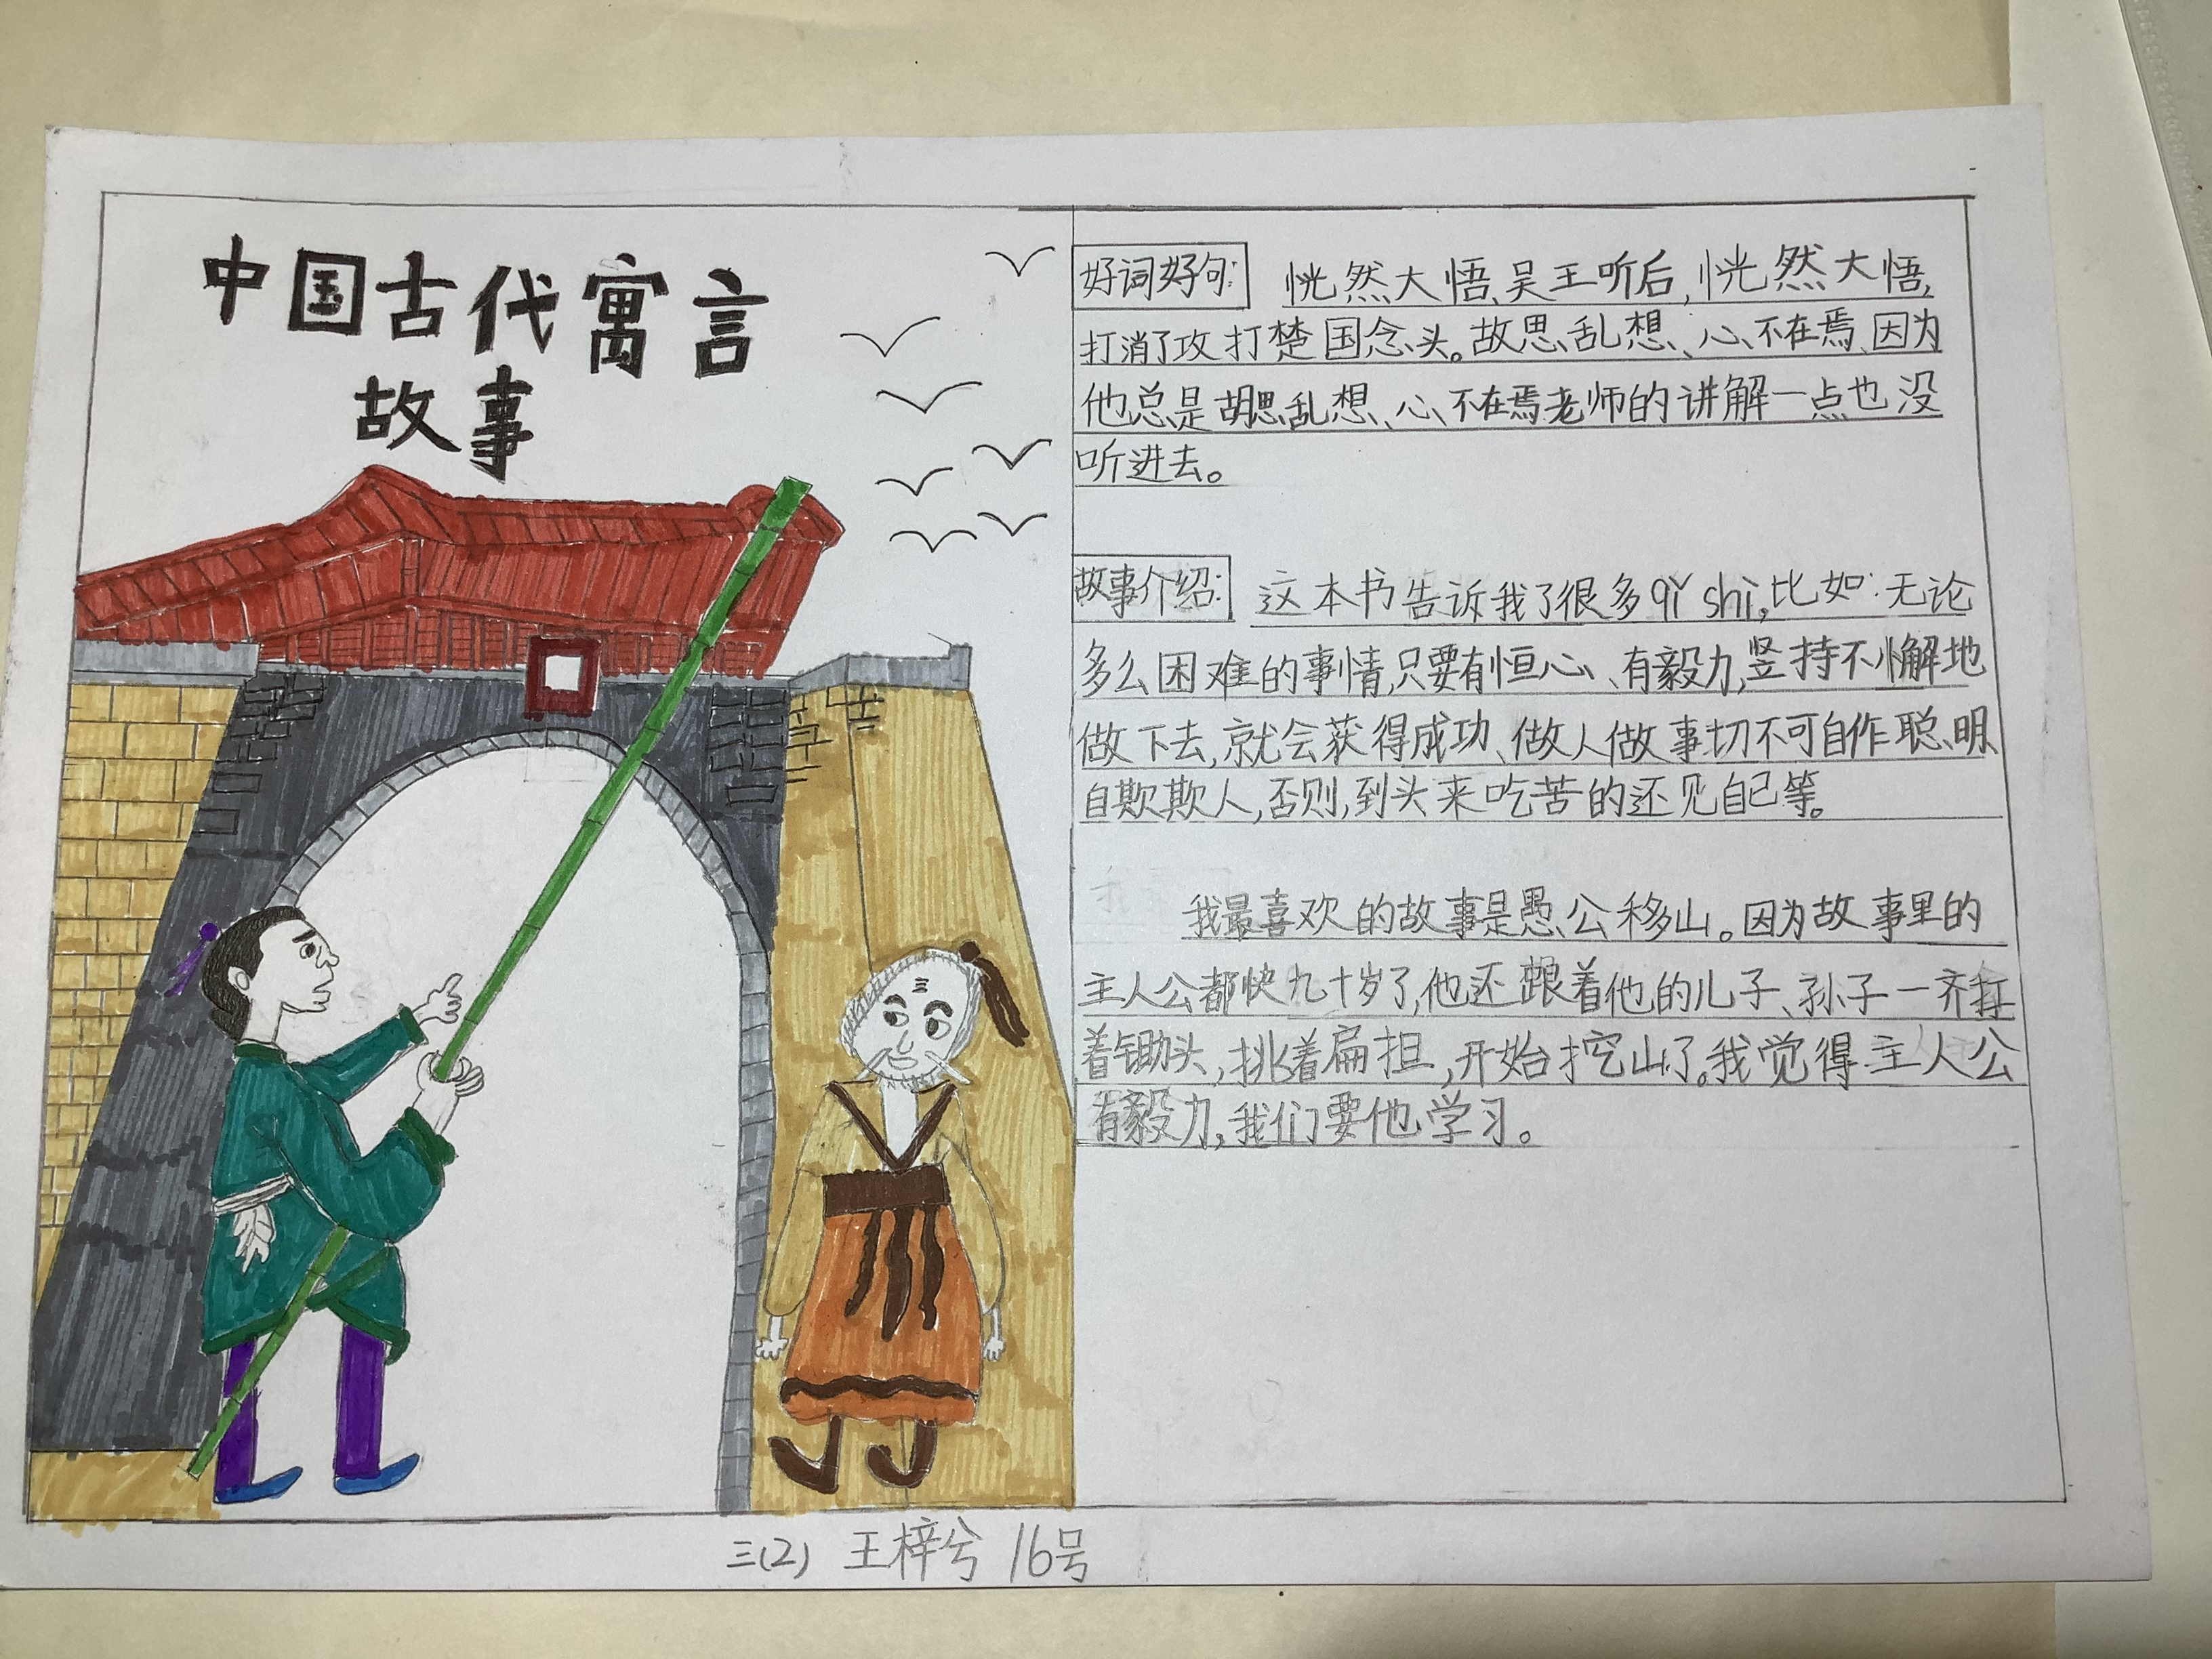 中国古代寓言
故事
好词好句: 恍然大悟、吴王听后,恍然大悟,
打消了攻打楚国念头。故思乱想、心不在焉、因为
他总是胡思乱想、心不在焉老师的讲解一点也没
听进去。
故事介绍: 这本书告诉我了很多qǐ shì,比如:无论
多么困难的事情,只要有恒心、有毅力,竖持不懈地
做下去,就会获得成功、做人做事切不可自作聪明、
自欺欺人,否则,到头来吃苦的还见自己等。
我最喜欢的故事是愚公移山。因为故事里的
主人公都快九十岁了,他还跟着他的儿子、孙子一齐扛
着锄头,挑着扁担,开始挖山了。我觉得主人公
有毅力,我们要他学习。
三(2) 王梓兮 16号